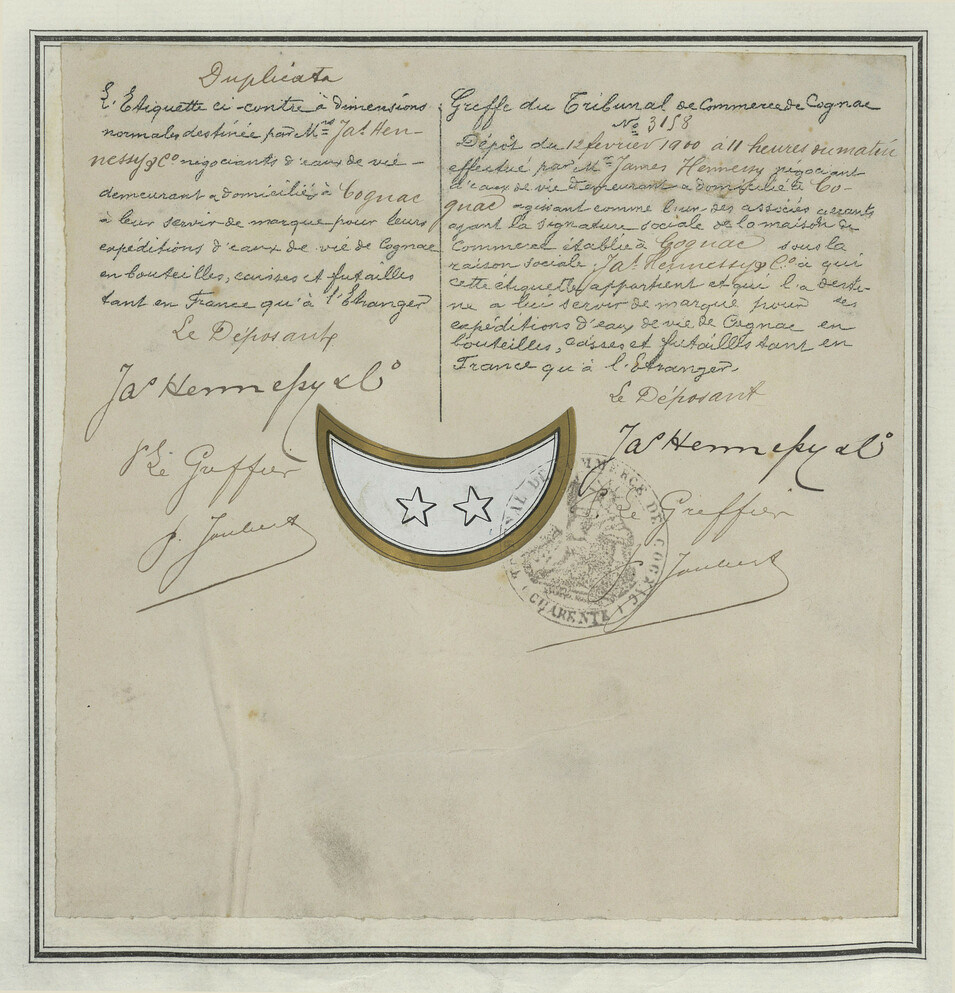 Duplicata
L'Etiquette ci-contre à dimensions
normales destinée par Mrs Jas Hen-
nessy & Co négociants d'eaux de vie -
demeurant & domiciliés à Cognac
à leur servir de marque pour leurs
expéditions d'eaux de vie de Cognac
en bouteilles, caisses et futailles
tant en France qu'à l'Étranger
Le Déposant
Jas Hennessy & Co
Le Greffier
Joubert
Greffe du Tribunal de Commerce de Cognac
No 3158
Dépôt du 12 février 1900 à 11 heures du matin
effectué par Mr James Hennessy négociant
d'eaux de vie demeurant & domicilié à Co-
gnac agissant comme l'un des associés gérants
ayant la signature sociale de la maison de
Commerce établie à Cognac sous la
raison sociale Jas Hennessy & Co à qui
cette étiquette appartient et qui l'a desti-
né a lui servir de marque pour ses
expéditions d'eaux de vie de Cognac en
bouteilles, caisses et futailles tant en
France qu'à l'Etranger.
Le Déposant
Jas Hennessy & Co
Le Greffier
Joubert
TRIBUNAL DE COMMERCE DE COGNAC
CHARENTE